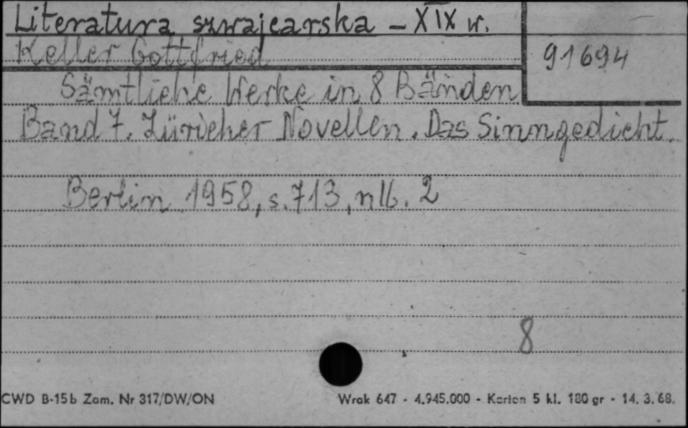 Literatura szwajcarska - XIX w.
Keller Gottfried
91694
Sämtliche Werke in 8 Bänden
Band 7. Züricher Novellen. Das Sinngedicht.
Berlin 1958, s. 713, nlb. 2
8
CWD B-15b Zam. Nr 317/DW/ON
Wrak 647 - 4.945.000 - Karton 5 kl. 180 gr - 14. 3. 68.